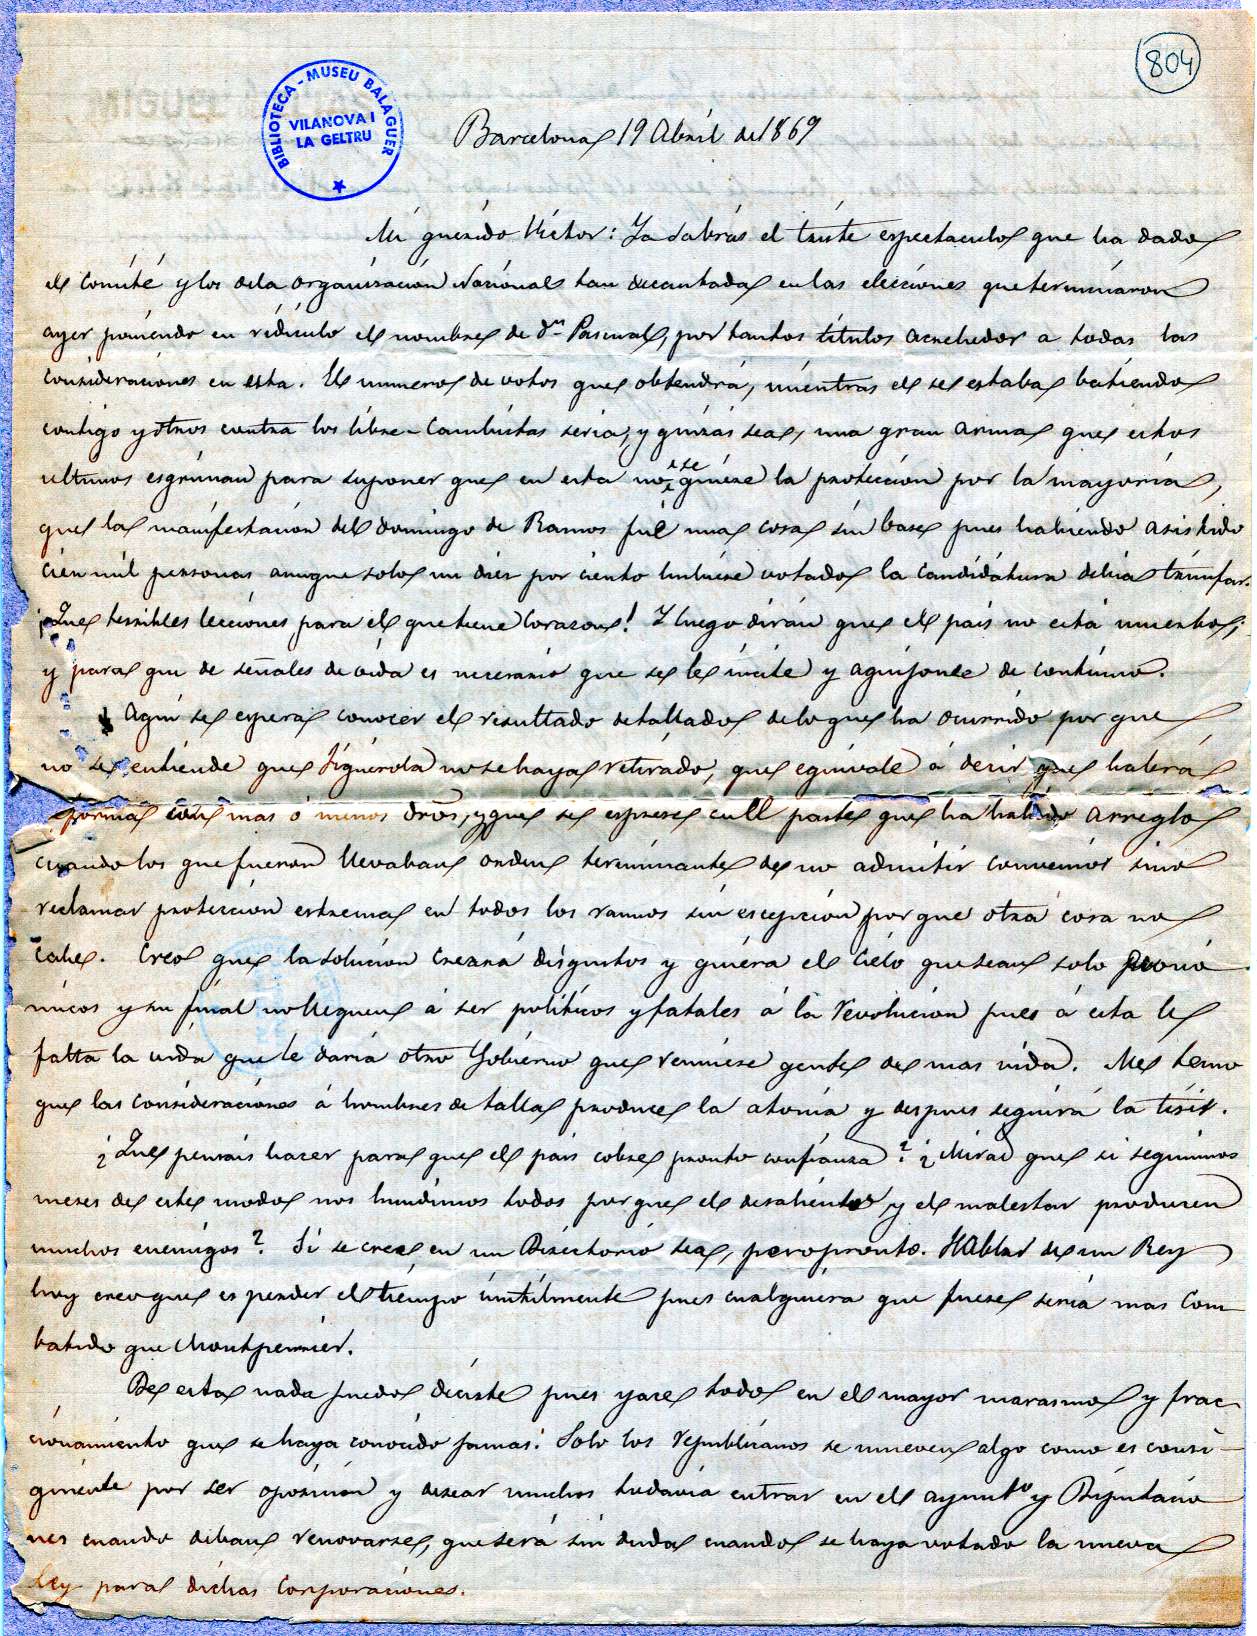 804
BIBLIOTECA - MUSEU BALAGUER
VILANOVA I
LA GELTRU
Barcelona 19 Abril de 1869
Mi querido Victor: Ya sabrás el triste espectaculo que ha dado
el Comité y los de la organización Nacional tan decantada en las elecciones que terminaron
ayer poniendo en ridiculo el nombre de Dn Pascual, por tantos titulos acrehedor a todas las
consideraciones en esta. El numero de votos que obtendrá, mientras el se estaba batiendo
contigo y otros contra los libre-Cambistas seria, y quizás sea, una gran arma que estos
ultimos esgriman para suponer que en esta no se quiere la protección por la mayoria,
que la manifestación del domingo de Ramos fué una cosa sin base pues habiendo asistido
cien mil personas aunque solo un diez por ciento hubiese votado la Candidatura debia triunfar.
¡Que terribles lecciones para el que tiene Corazon! Y luego dirán que el pais no está muerto;
y para que de señales de vida es necesario que se le incite y aguijonee de continuo.
Aqui se espera conocer el resultado detallado de lo que ha ocurrido por que
no se entiende que Figuerola no se haya retirado, que equivale á decir que habrá
reforma con mas ó menos dros, y que se exprese en el parte que ha habido arreglo
cuando los que fueron llevaban orden terminante de no admitir convenios sino
reclamar proteccion estrema en todos los ramos sin escepcion por que otra cosa no
cabe. Creo que la solucion creará disgustos y quiera el Cielo que sean solo econo
micos y su final no lleguen á ser politicos y fatales á la revolucion pues á esta le
falta la vida que le daria otro Gobierno que reuniese gente de mas vida. Me temo
que las consideraciones á hombres de talla produce la atonia y despues seguirá la tisis.
¿Que pensais hacer para que el pais cobre pronto confianza? ¿Mirad que si seguimos
meses de este modo nos hundimos todos por que el desaliento y el malestar producen
muchos enemigos? Si se cree en un Directorio sea, pero pronto. Hablar de un Rey
hoy creo que es perder el tiempo inutilmente pues cualquiera que fuese seria mas Com
batido que Montpensier.
De esta nada puedo decirte pues yace todo en el mayor marasmo y frac-
cionamiento que se haya conocido jamas. Solo los republicanos se mueven algo como es consi-
guiente por ser oposicion y desear muchos todavia entrar en el ayuntto y Diputacio
nes cuando deban renovarse, que será sin duda cuando se haya votado la nueva
Ley para dichas Corporaciones.